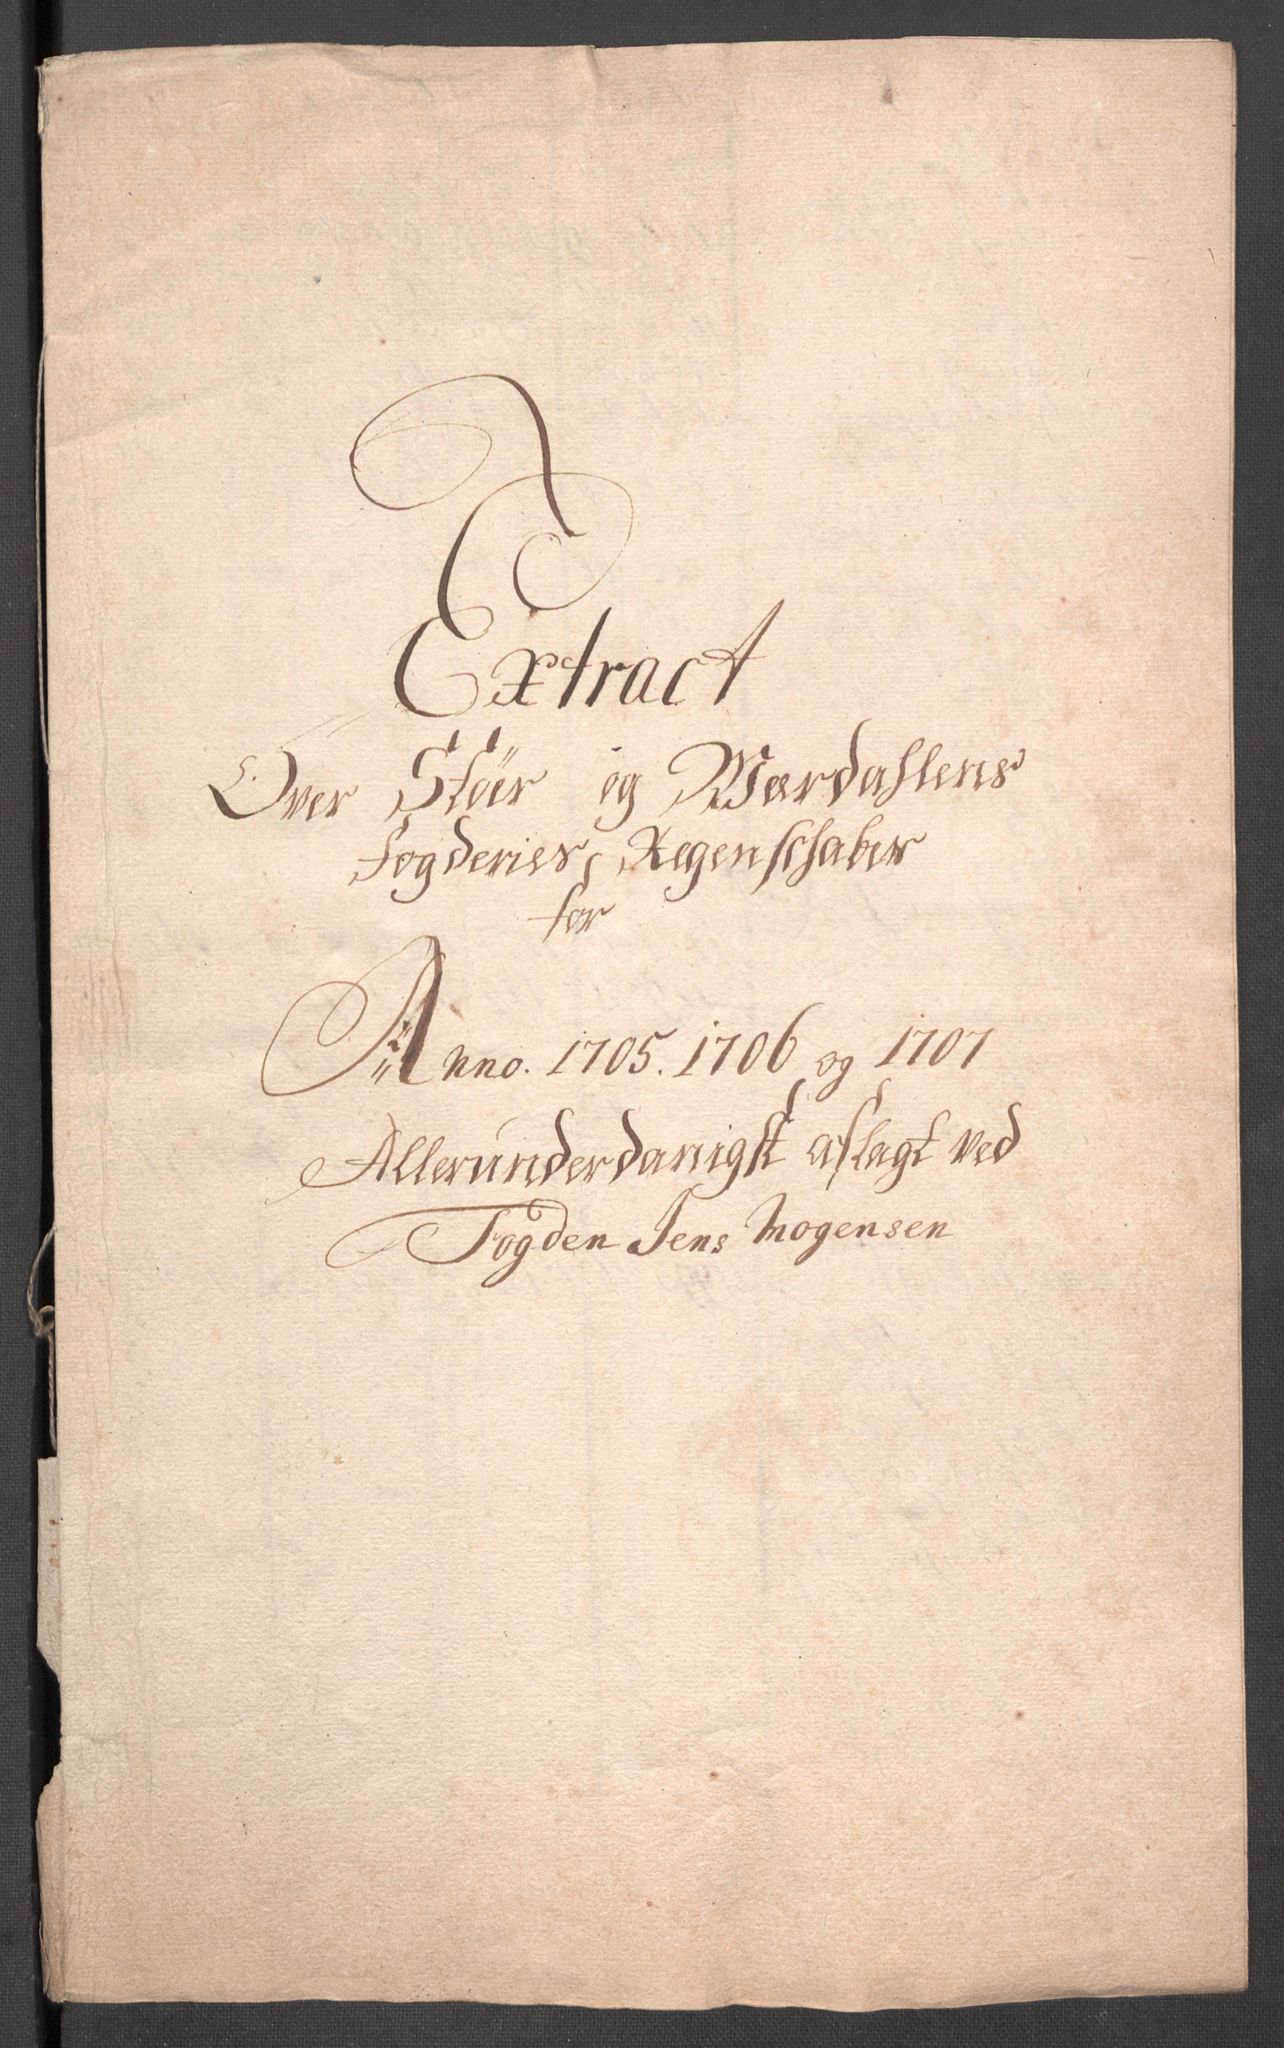 Extract
Over Stöer og Wærdahlens
Fogderies Regenschaber
for
Anno. 1705. 1706 og 1707
Allerunderdanigst aflagt ved
Fogden Jens Mogensen